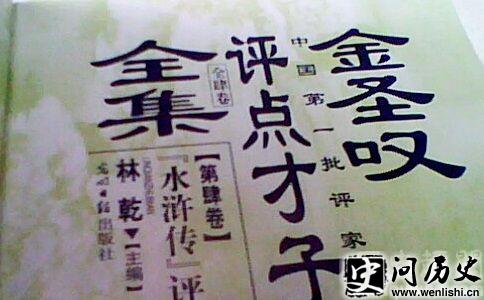 金圣叹
中国第一批评家
评点才子
全集
全肆卷
【第肆卷】
『水浒传』评
林乾▼【主编】
光明日报出版社
史问历史
www.wenlishi.cn